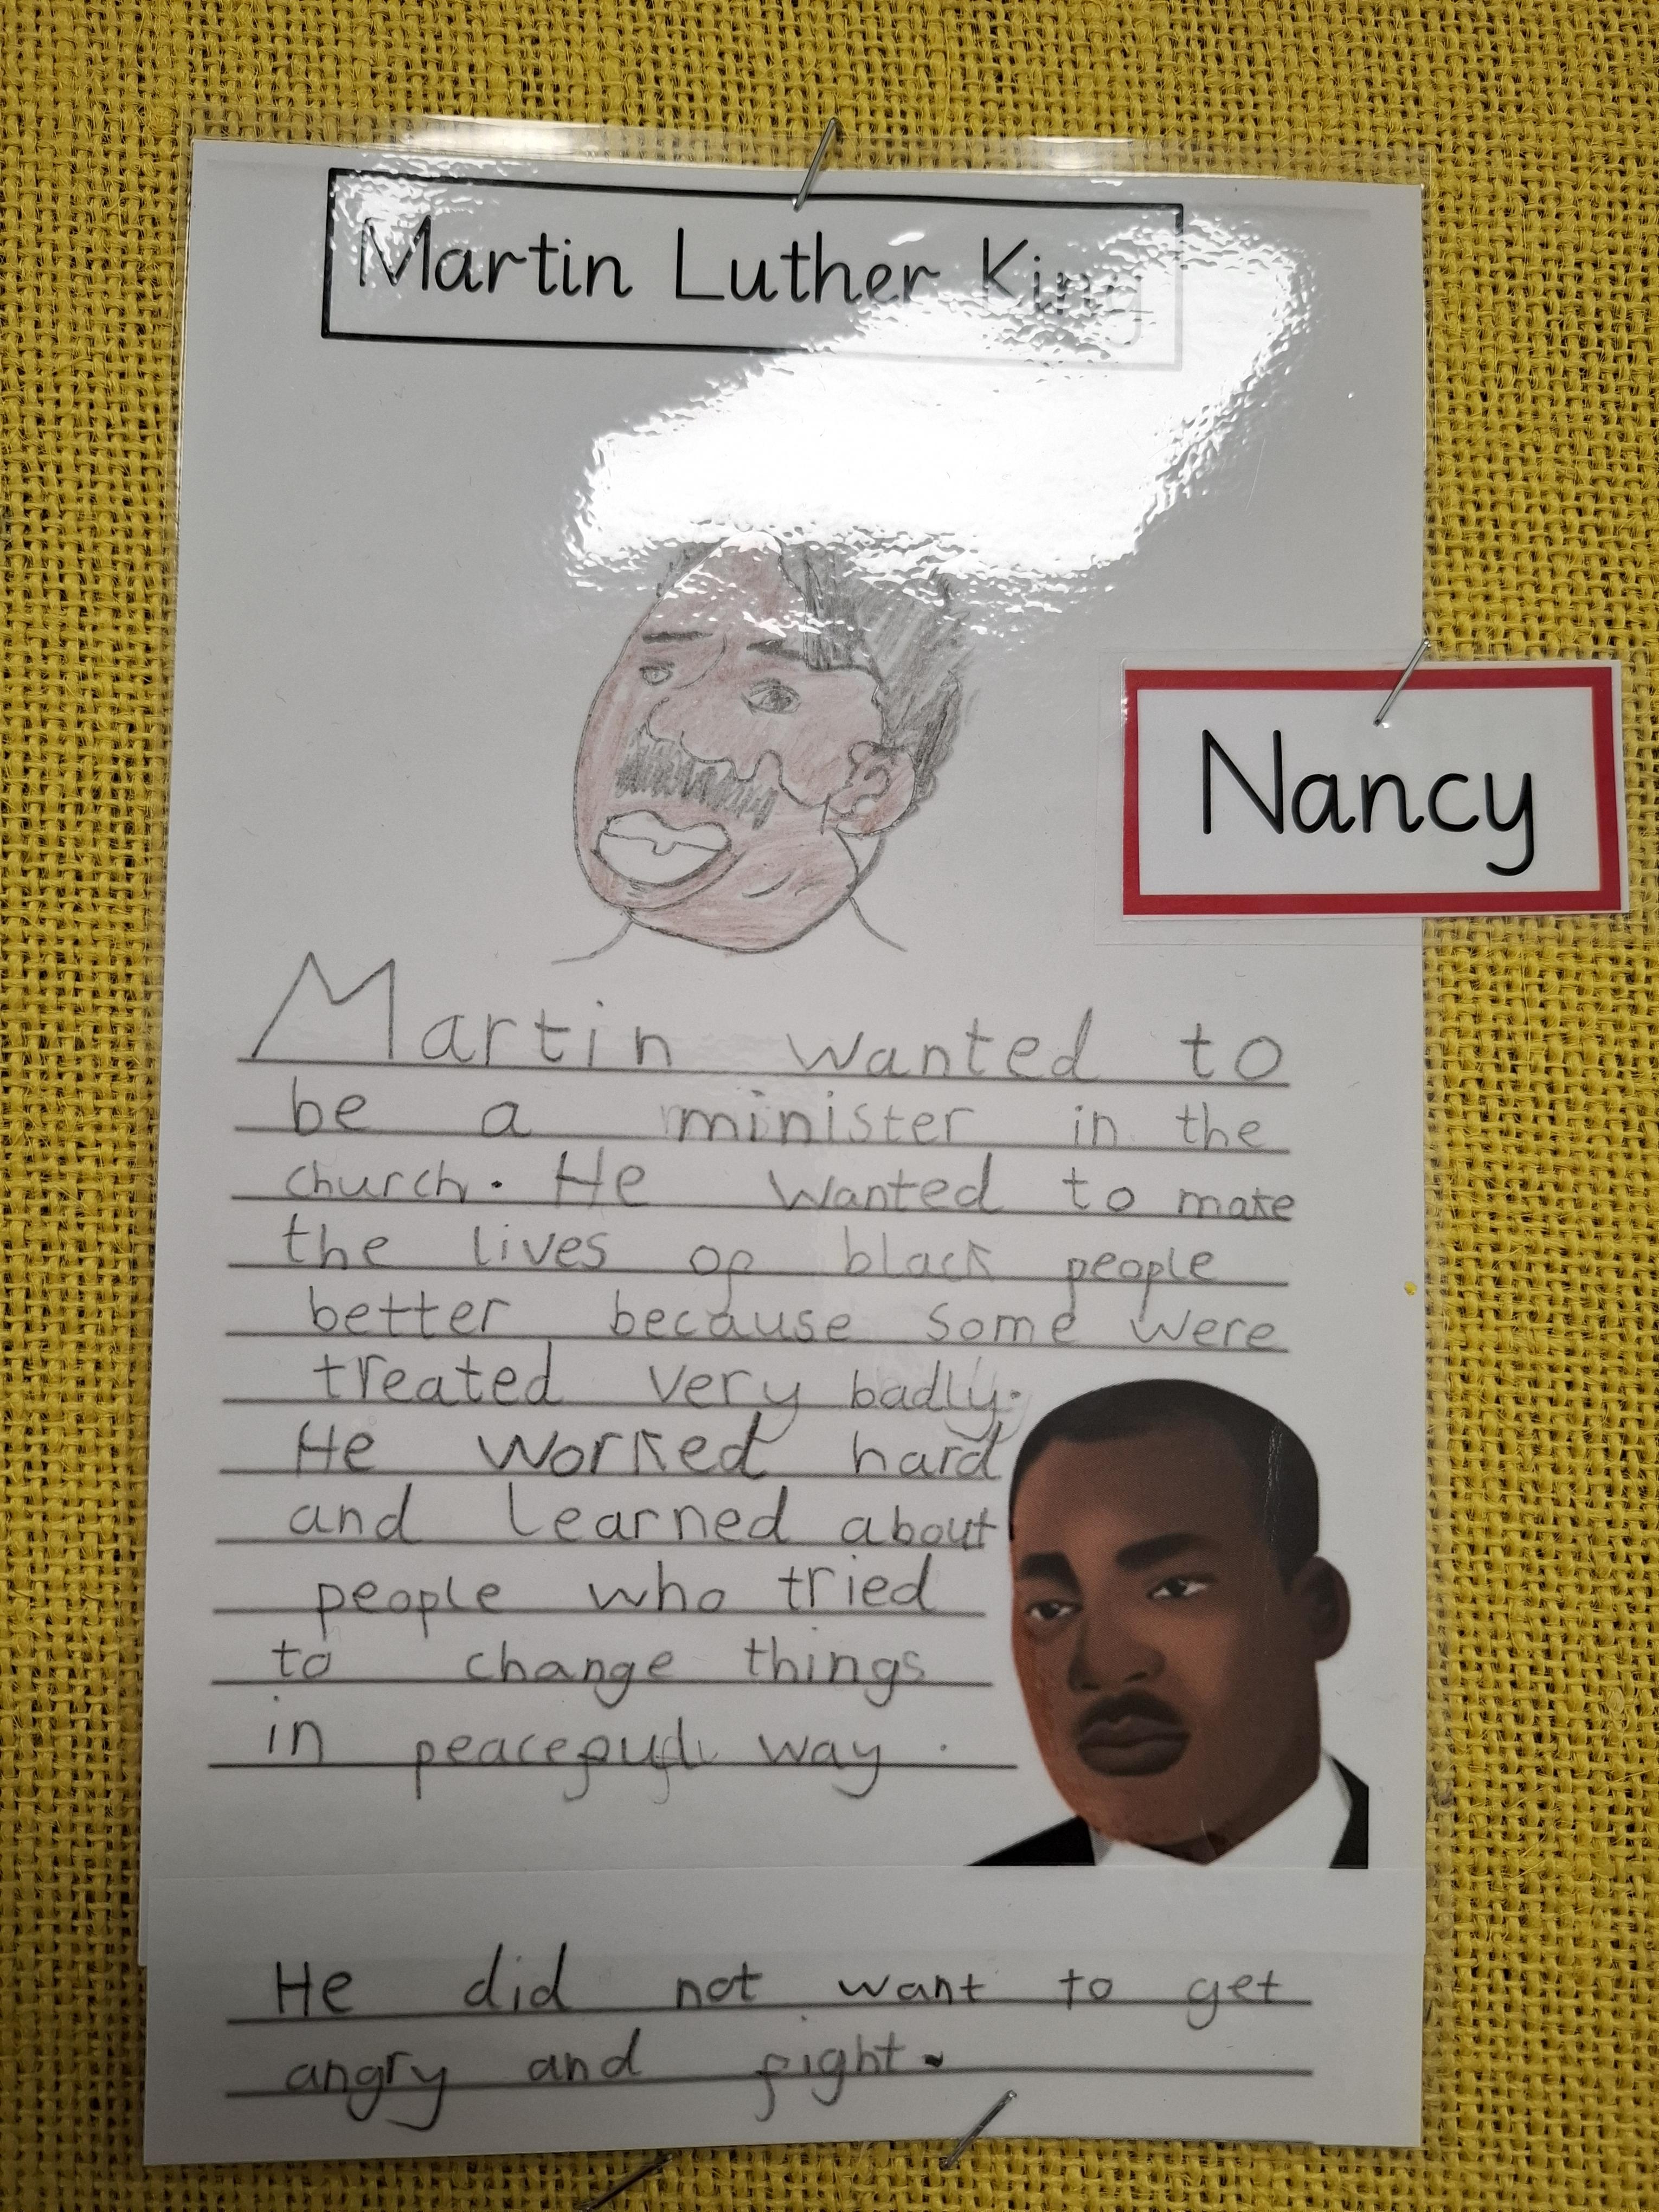 Martin Luther King
Nancy
Martin wanted to
be a minister in the
church. He wanted to make
the lives of black people
better because some were
treated very badly.
He worked hard
and learned about
people who tried
to change things
in peaceful way.
He did not want to get
angry and fight.